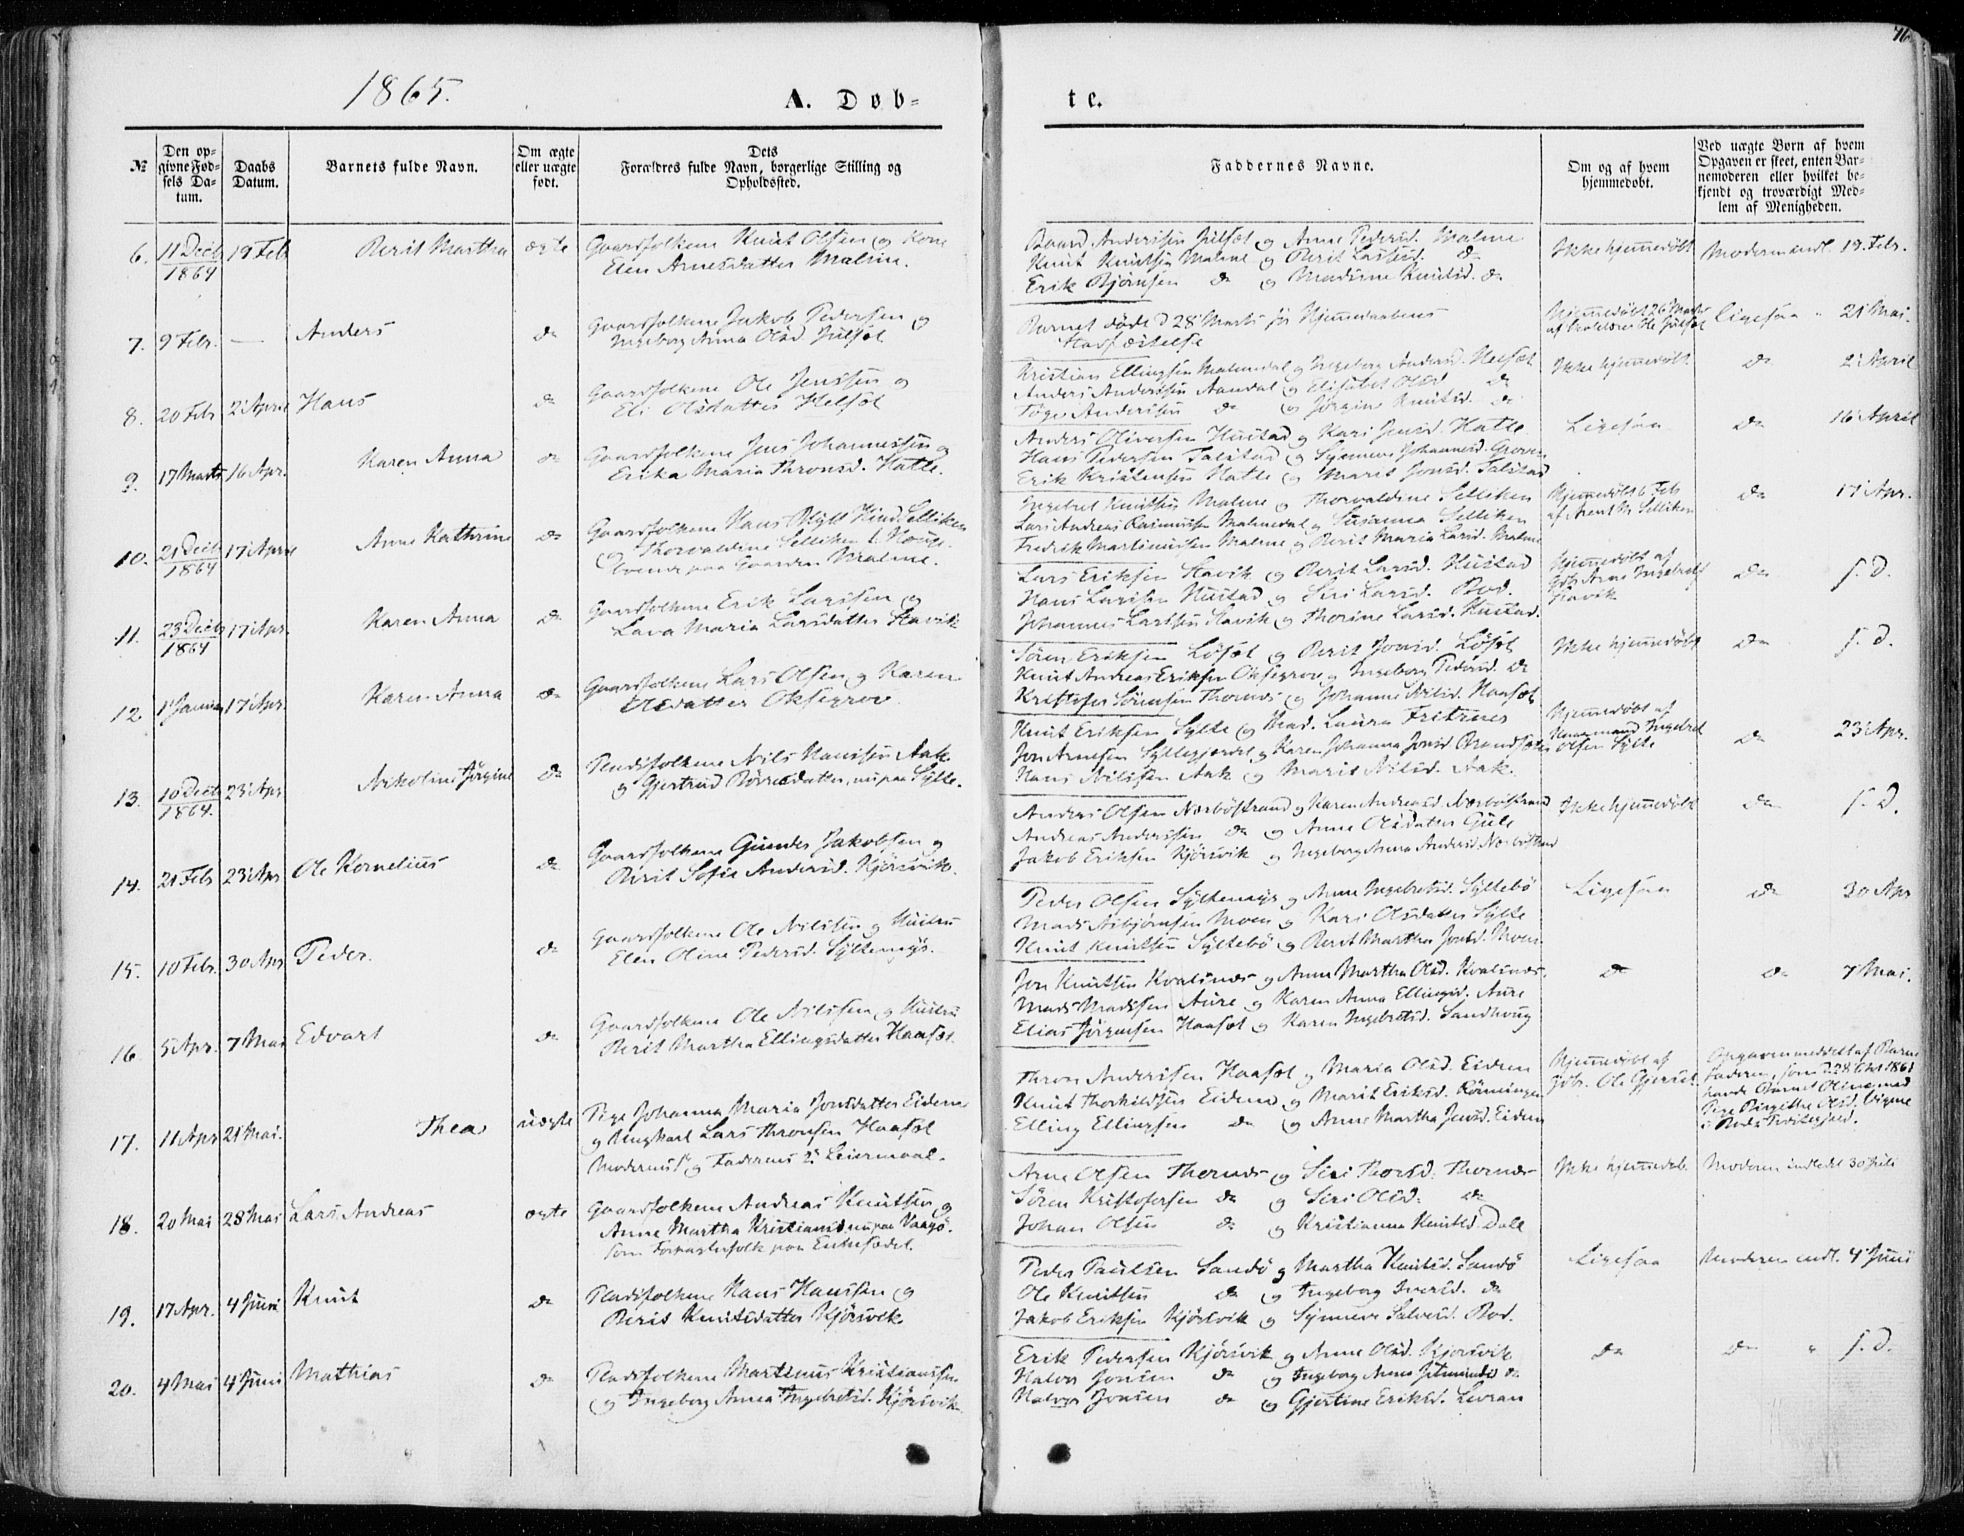 1865.
76
A. Døb-
te.
№
Den op-
givne Fød-
sels Da-
tum.
Daabs
Datum.
Barnets fulde Navn.
Om ægte
eller uægte
født.
Dets
Forældres fulde Navn, borgerlige Stilling og
Opholdssted.
Faddernes Navne.
Om og af hvem
hjemmedøbt.
Ved uægte Børn af hvem
Opgaven er skeet, enten Bar-
nemoderen eller hvilket be-
kjendt og troværdigt Med-
lem af Menigheden.
6. 11 Decb 1864 19 Feb Berit Martha ægte Gaardfolkene Knut Olsen og Kone
Elen Arnesdatter Malme.
Baard Anderssen Julsæt og Anne Pedersd. Malme
Knut Knutsen Malme og Berit Larsd. do
Erik Bjørnsen do og Madsine Knutsd. do
Ikke hjemmedøbt Moderen indl. 19. Febr.
7. 9 Febr. — Anders do Gaardfolkene Jakob Pedersen og
Ingeborg Anna Olsd. Julsæt
Barnet døde d 28 Marts før Hjemmedaabens
Stadfæstelse
Hjemmedøbt 26 Marts
af Ole Julsæt
Ligesaa " 21 Mai.
8. 20 Feb 2 April Hans do Gaardfolkene Ole Jenssen og
Eli Olsdatter Helsæt
Kristian Ellingsen Malmedal og Ingeborg Andersd. Helsæt
Anders Anderssen Aandal og Elisabet Olsd do
Tøger Anderssen do og Jørgine Knutsd. do
Ikke hjemmedøbt do 2 April
9. 17 Marts 16 Apr. Karen Anna do Gaardfolkene Jens Johannessen og
Erika Maria Thronsd. Hatle.
Anders Oliversen Hustad og Kari Jensd. Hatle
Hans Pedersen Talstad og Synneve Johannesd. Groven
Erik Kristensen Hatle og Marit Jonsd. Talstad
Ligesaa do 16 April
10. 21 Decb 1864 17 April Anne Kathrine do Gaardfolkene Hans Kind Selliken
og Thorvaldine Selliken f. Houge
boende paa Gaarden Malme.
Ingebret Knutsen Malme og Thorvaldine Selliken
Lars Andreas Rasmussen Malmedal og Susanna Selliken
Fredrik Martinussen Malme og Berit Maria Larsd. Malme
Hjemmedøbt 6 Feb
af Arent M. Selliken
do 17 Apr.
11. 23 Decb 1864 17 Apr. Karen Anna do Gaardfolkene Erik Larssen og
Lava Maria Larsdatter Stavik
Lars Eriksen Stavik og Berit Larsd. Hustad
Hans Larssen Hustad og Siri Larsd. Bod.
Johannes Larssen Stavik og Thorine Larsd. Hustad.
Hjemmedøbt af
Gbr. Arne Ingebretsen
Stavik
do s. D.
12. 1 Januar 17 Apr. Karen Anna do Gaardfolkene Lars Olsen og Karen
Olsdatter Oksegrov
Søren Eriksen Løset og Berit Jonsd. Løset
Knut Andreas Eriksen Oksegrov og Ingeborg Pedersd. do
Kristofer Sørensen Thornes og Johanne Nilsd. Haaset
Ikke hjemmedøbt do s. D.
13. 10 Decb 1864. 23 Apr Nikoline Jørgine do Pladsfolkene Nils Hanssen Aak
og Gjertrud Børresdatter, nu paa Sylte.
Knut Eriksen Sylte og Mad. Laura Fritznes
Jon Arnesen Syltegjerdet og Karen Johanna Jonsd Brandsæter
Hans Nilssen Aak og Marit Nilsd. Aak.
Hjemmedøbt af
Ingebret
Olsen Sylte
do 23 Apr.
14. 21 Feb 23 Apr Ole Kornelius do Gaardfolkene Gunder Jakobsen og
Berit Sofie Andersd. Kjørsvik.
Anders Olsen Nærbøstrand og Karen Andreasd. Nærbøstrand
Andreas Anderssen do og Anne Olsdatter Gule
Jakob Eriksen Kjørsvik og Ingeborg Anna Andersd. Nærbøstrand
Ikke hjemmedøbt do s. D.
15. 10 Febr. 30 Apr Peder. do Gaardfolkene Ole Nilssen og Hustru
Elen Olina Pedersd. Syltemyr.
Peder Olsen Syltemyr og Anne Ingebretsd. Syltebø
Mads Asbjørnsen Moen og Kari Olsdatter Sylte
Knut Knutsen Syltebø og Berit Martha Jonsd. Moen.
Ligesaa do 30 Apr
16. 5 Apr. 7 Mai Edvart do Gaardfolkene Ole Nilssen og Hustru
Berit Martha Ellingsdatter Haaset.
Jon Knutsen Kvalsnes og Anne Martha Olsd. Kvalsnes.
Mads Madssen Aure og Karen Anna Ellingsd. Aure
Elias Jørgensen Haaset og Karen Ingebretsd. Sandhoug
do do 7 Mai.
17. 11 Apr 21 Mai. Thea uægte Pige Johanna Maria Jonsdatter Eidem
og Ungkarl Lars Thronsen Haaset
Moderens 1 og Faderens 2 Leiermaal.
Thron Anderssen Haaset og Maria Olsd. Eidem
Knut Thorkildsen Eidem og Marit Eriksd. Rønningen
Elling Ellingsen do og Anne Martha Jensd. Eidem
Hjemmedøbt af
Gbr. Ole Gjerset
Opgaven meddelt af Barne
faderen, som d. 28 Oktr 1861
havde Barnet Olina med
Pige Birgithe Olsd. Vigne
i Røds Præstegjeld.
18. 20 Mai 28 Mai Lars Andreas ægte Gaardfolkene Andreas Knutsen og
Anne Martha Kristiansd nu paa Vaagø.
som Forpagterfolk paa Enkesædet.
Arne Olsen Thornes og Siri Thorsd. Thornes
Søren Kristofersen do og Siri Olsd. do
Johan Olsen do og Kristianna Knutsd Dale
Ikke hjemmedøb Moderen indledet 30 Juli
19. 17 Apr. 4 Juni Knut do Pladsfolkene Hans Hanssen og
Berit Knutsdatter Kjørsvik
Peder Paulsen Sandø og Martha Knutsd. Sandø
Ole Knutsen do og Ingeborg Iversd. do
Jakob Eriksen Kjørsvik og Synneve Salvesd. Bod.
Ligesaa Moderen indl. 4 Juni
20. 4 Mai 4 Juni Mathias do Pladsfolkene Martinus Kristianssen
og Ingeborg Anna Ingebretsd. Kjørsvik.
Erik Pedersen Kjørsvik og Anne Olsd. Kjørsvik
Halvor Jonsen do og Ingeborg Anna do
Halvor Jonsen do og Gjertine Eriksd. Levran
do do " s. D.